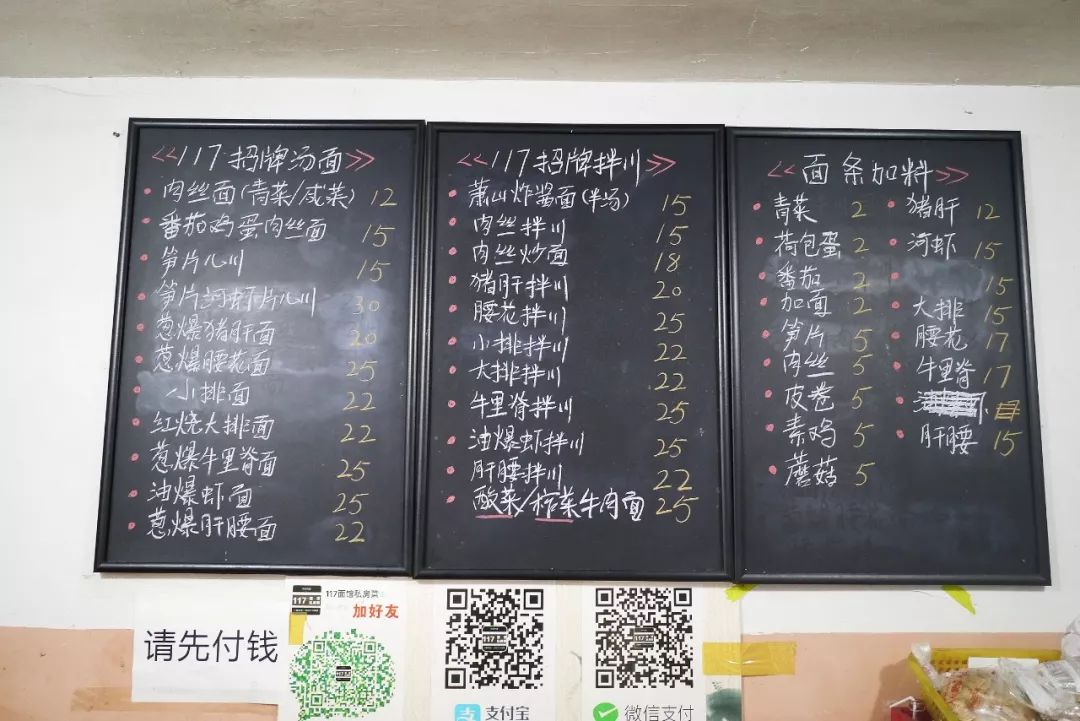 <<117招牌汤面>>
肉丝面(青菜/咸菜) 12
番茄鸡蛋肉丝面 15
笋片儿川 15
笋片河虾片儿川 30
葱爆猪肝面 20
葱爆腰花面 25
小排面 22
红烧大排面 22
葱爆牛里脊面 25
油爆虾面 25
葱爆肝腰面 22
<<117招牌拌川>>
萧山炸酱面(半汤) 15
肉丝拌川 15
肉丝炒面 18
猪肝拌川 20
腰花拌川 25
小排拌川 22
大排拌川 22
牛里脊拌川 25
油爆虾拌川 25
肝腰拌川 22
酸菜/榨菜牛肉面 25
<<面条加料>>
青菜 2
荷包蛋 2
番茄 2
加面 2
笋片 5
肉丝 5
皮卷 5
素鸡 5
蘑菇 5
猪肝 12
河虾 15
15
大排 15
腰花 17
牛里脊 17
肝腰 15
请先付钱
117面馆私房菜
加好友
117
支付宝
117
微信支付
117